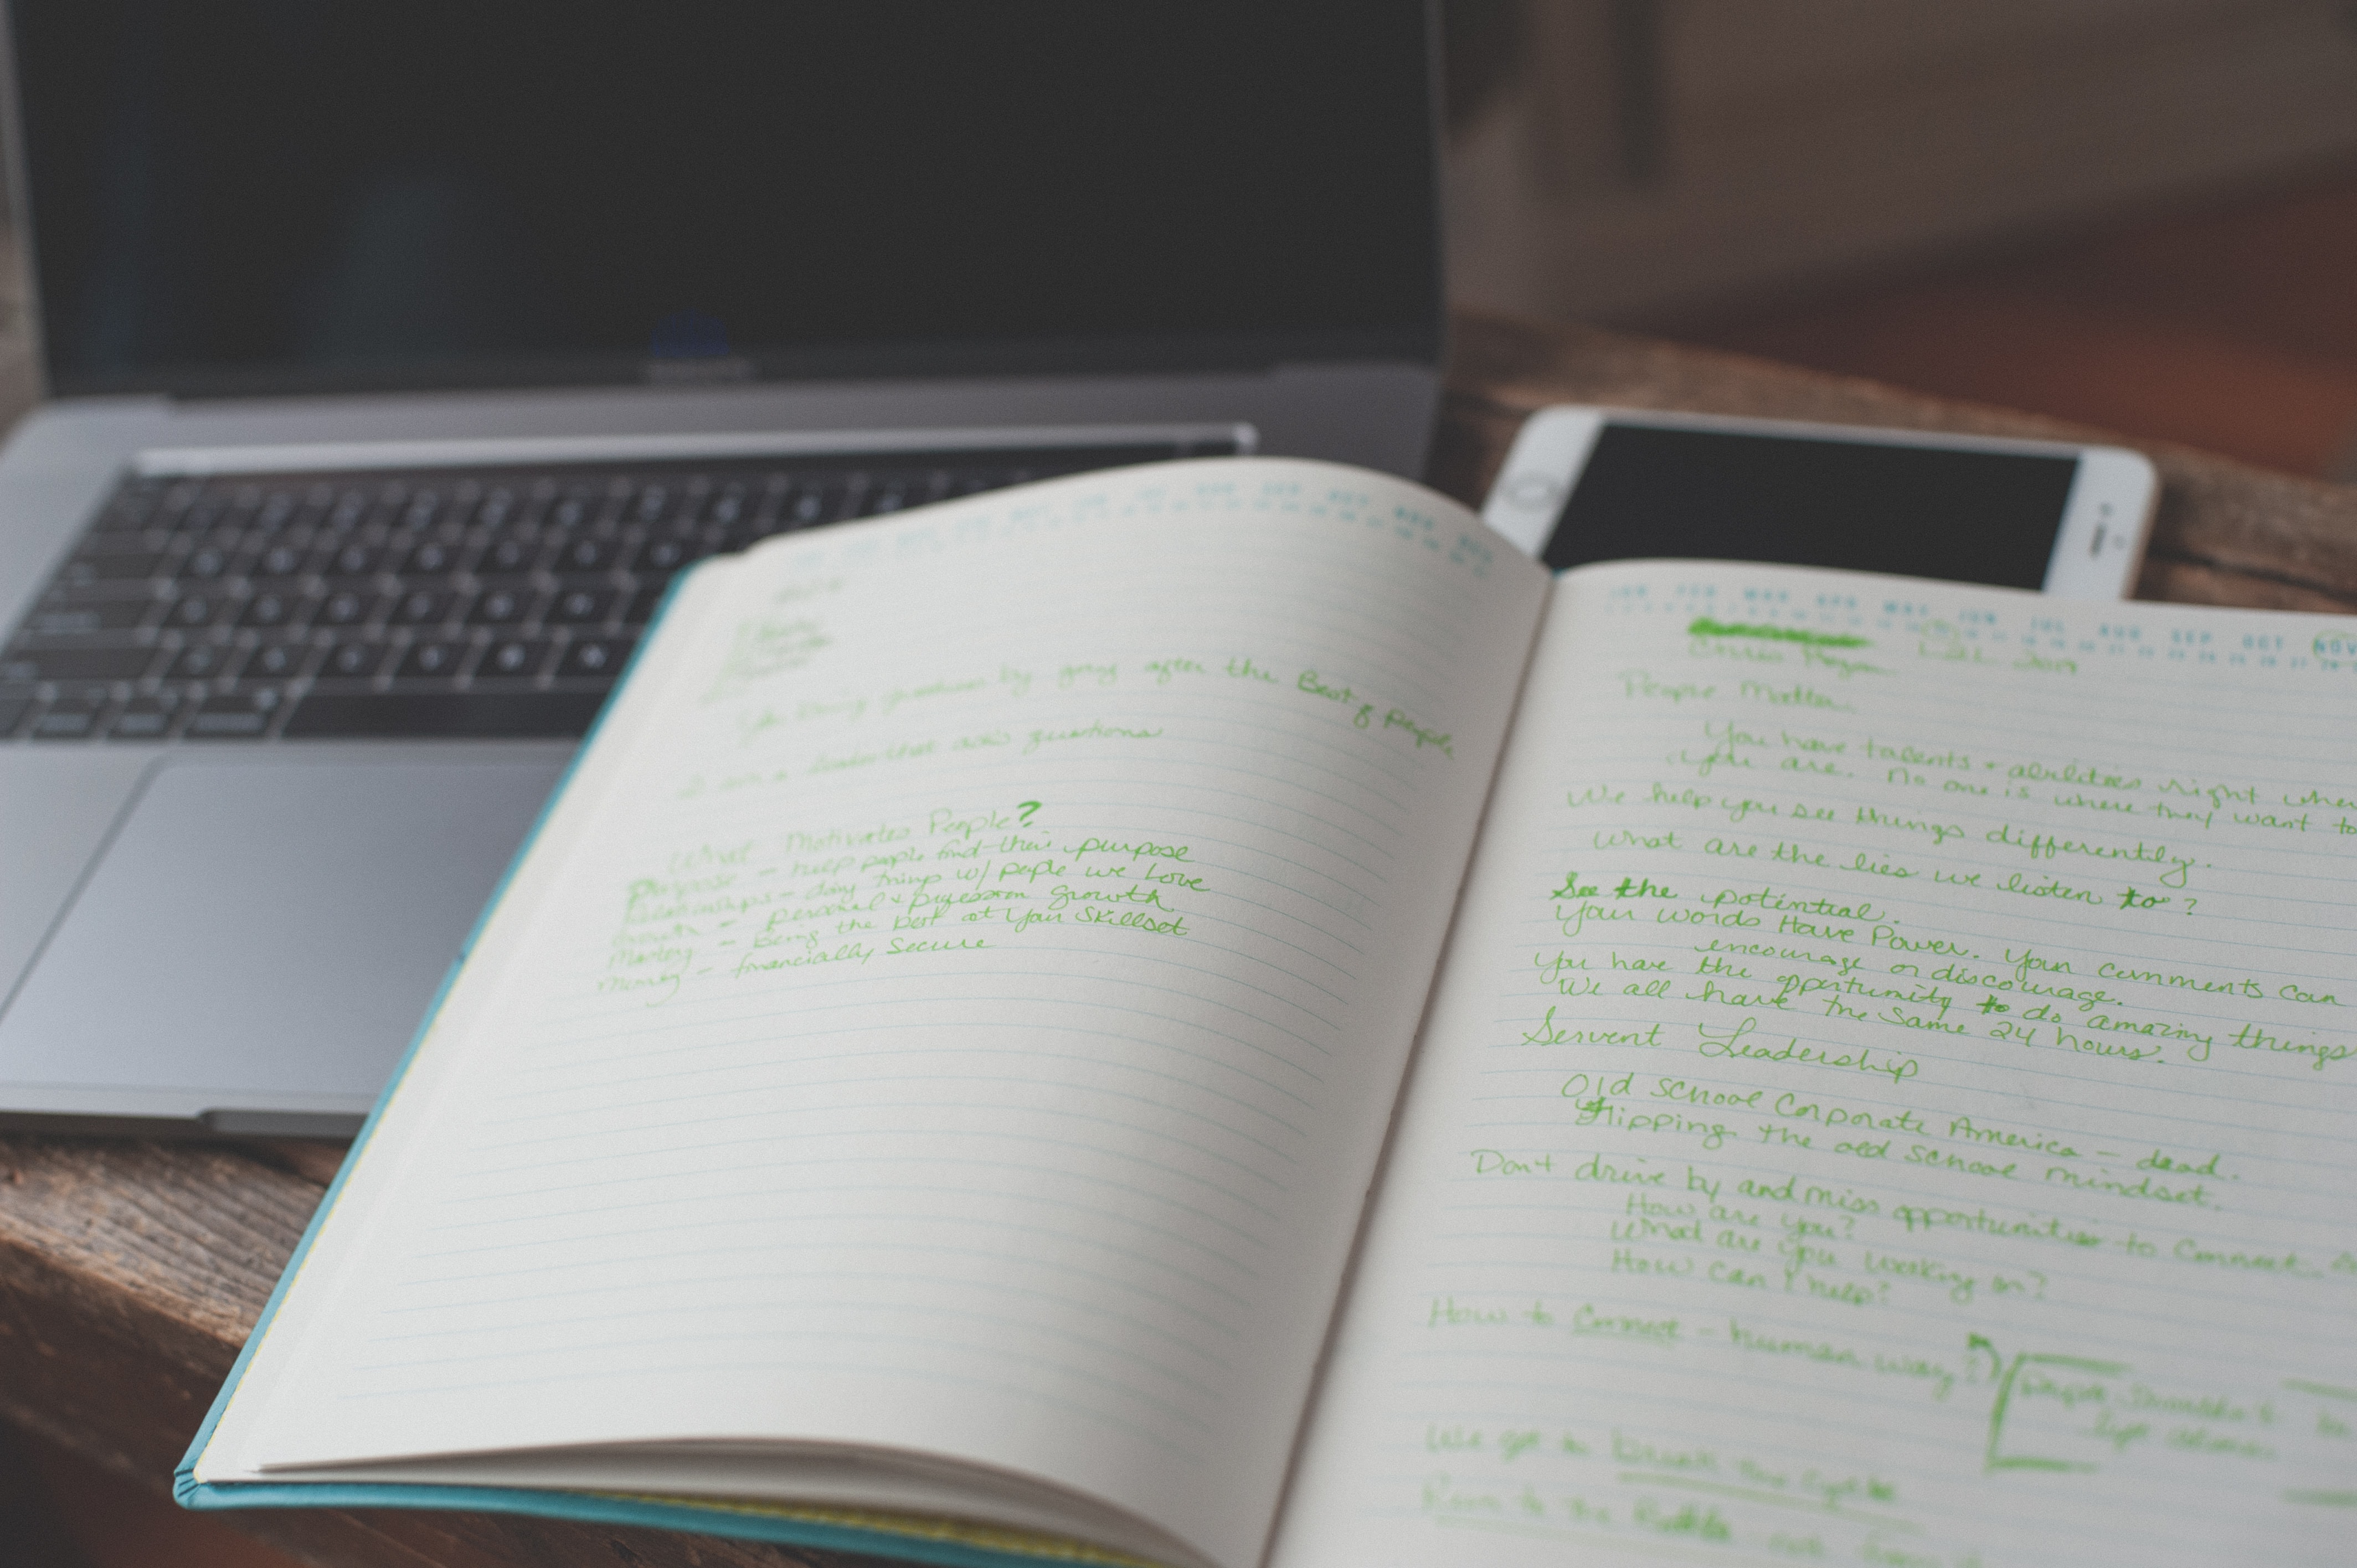 by going after the Best of people
I am a leader that asks questions
What Motivates People?
Purpose - help people find their purpose
Relationships - doing things w/ people we Love
Growth - personal + profession growth
Mastery - Being the best at your skillset
Money - financially secure
JAN FEB MAR APR MAY JUN JUL AUG SEP OCT NOV
People Matter
You have talents + abilities right where
you are. No one is where they want to
We help you see things differently.
What are the lies we listen to?
See the potential.
Your words Have Power. Your comments can
encourage or discourage.
You have the opportunity to do amazing things
We all have the same 24 hours.
Servent Leadership
Old School Corporate America - dead.
Flipping the old school mindset.
Don't drive by and miss opportunities to Connect.
How are you?
What are you working on?
How can I help?
How to Connect - human way?
We got to break the cycle